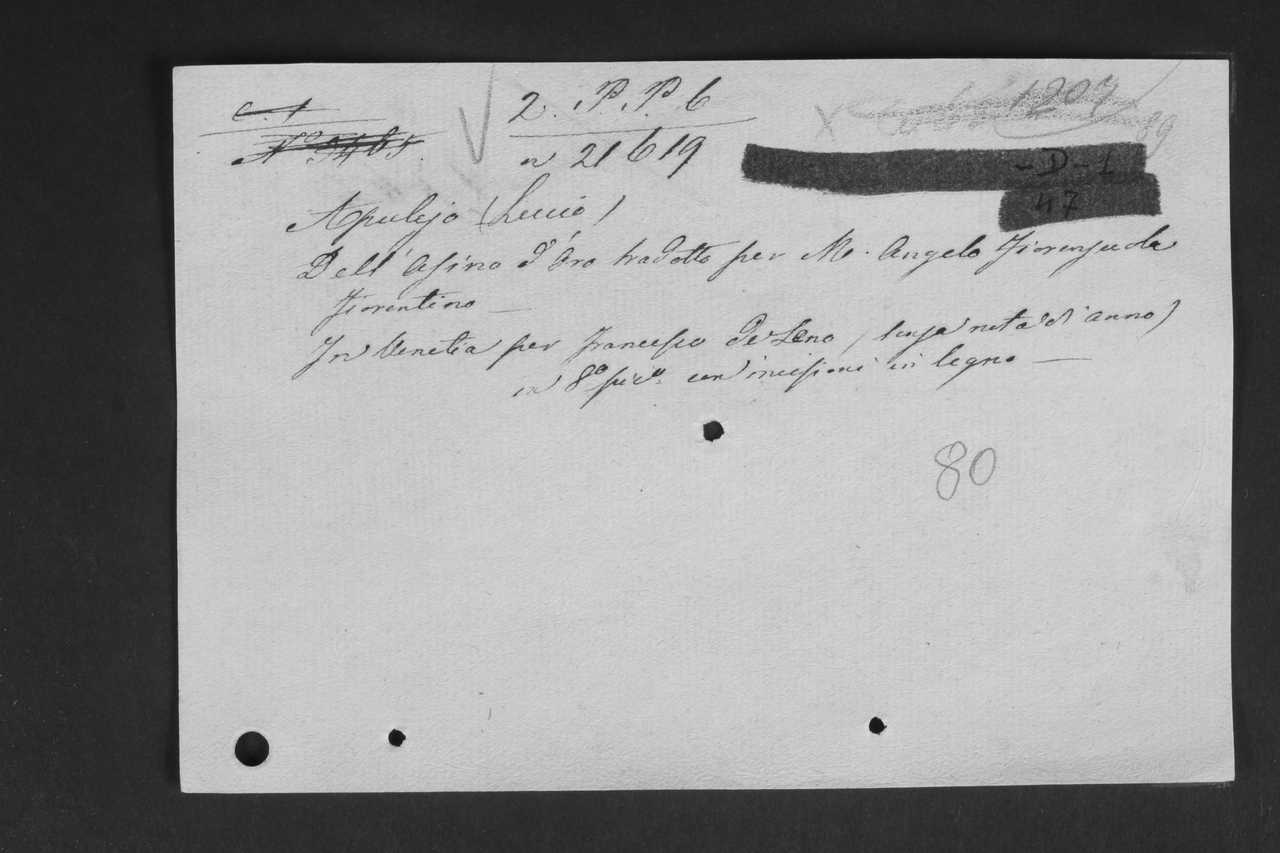 2. P.P. 6
n 21619
1207
89
-D-1
47
Apulejo (Lucio)
Dell' Asino d'Oro tradotto per M. Angelo Fiorenzuola
Fiorentino —
In Venetia per Francesco de Leno (senza nota di anno)
in 8º picº. con incisioni in legno —
80